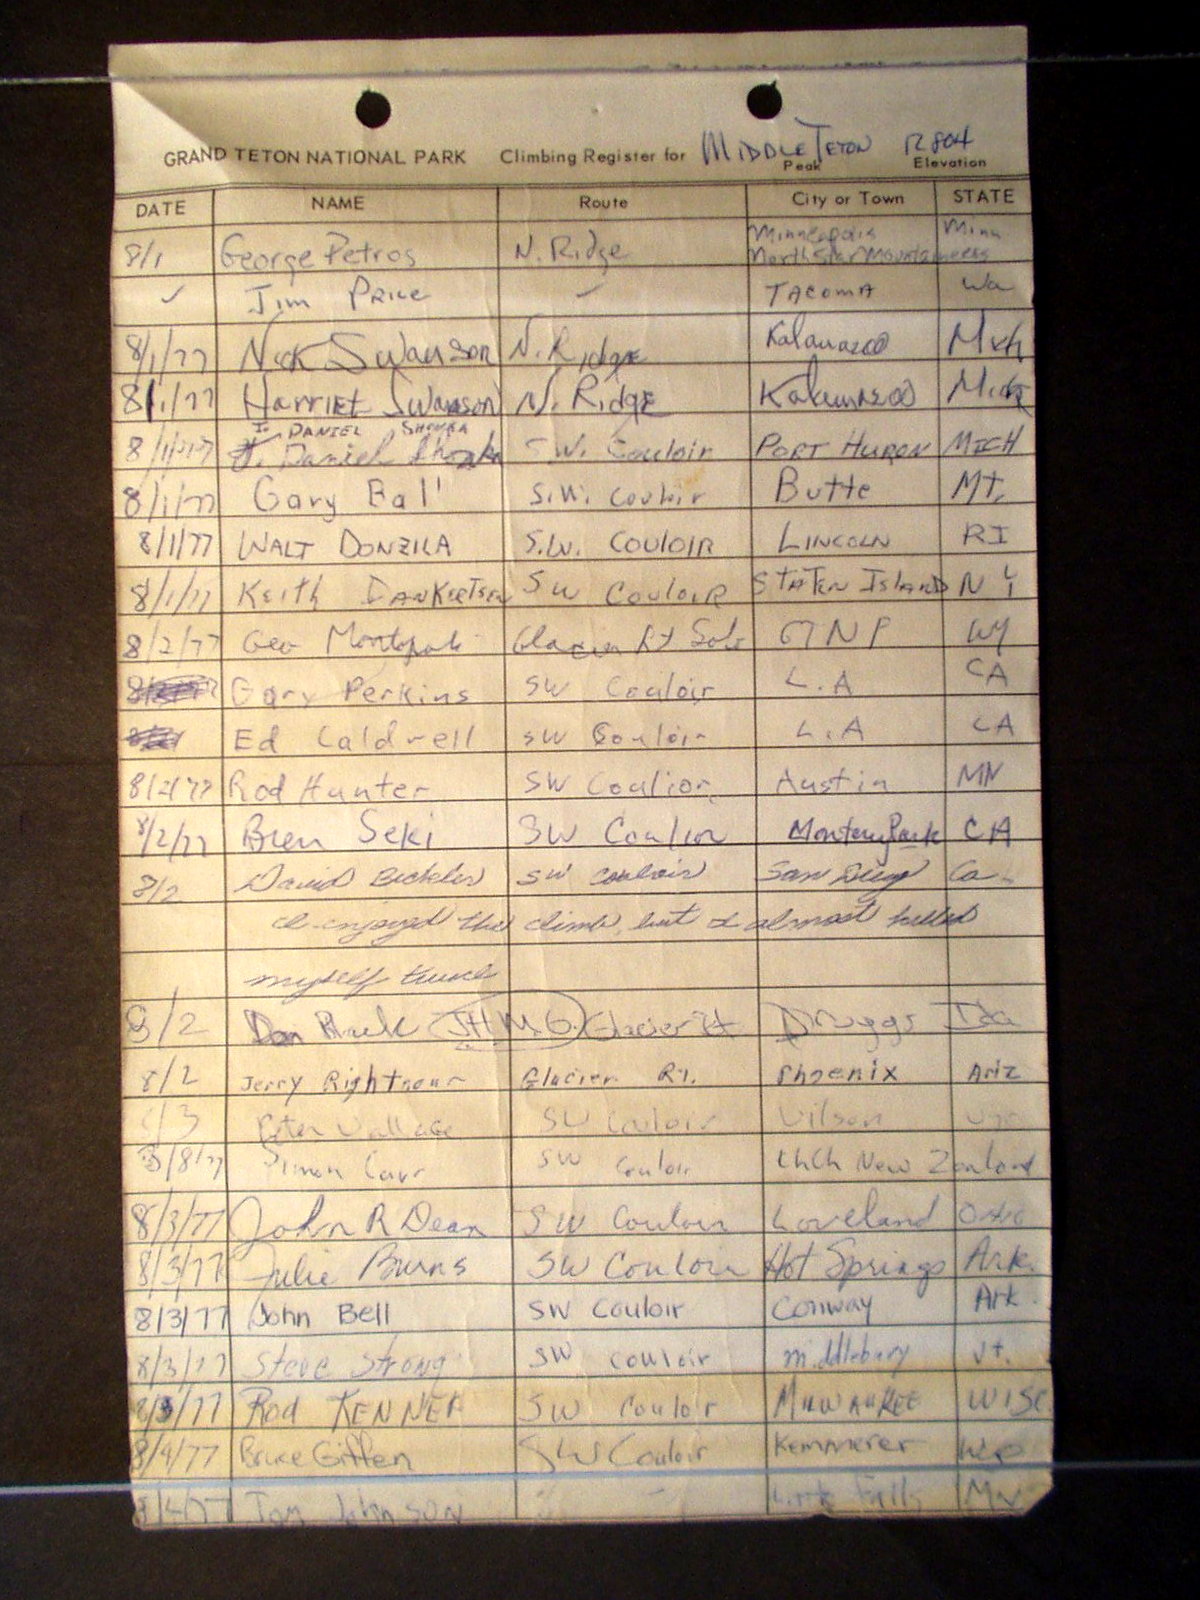 GRAND TETON NATIONAL PARK Climbing Register for MIDDLE TETON 12804
Peak Elevation
DATE NAME Route City or Town STATE
8/1 George Petros N. Ridge Minneapolis Minn
North Star Mountaineers
✓ Jim Price ✓ TACOMA Wa
8/1/77 Nick Swanson N. Ridge Kalamazoo Mich
8/1/77 Harriet Swanson N. Ridge Kalamazoo Mich
DANIEL
8/1/77 J. Daniel S.W. Couloir PORT HURON MICH
8/1/77 Gary S.W. Couloir Butte Mt.
8/1/77 WALT DONZILA S.W. COULOIR LINCOLN RI
8/1/77 Keith SW COULOIR STATEN ISLAND NY
8/2/77 Geo Glacier Rt GTNP WY
Gary Perkins SW Couloir L.A CA
Ed Caldwell SW Couloir L.A CA
8/2/77 Rod Hunter SW Coulior Austin MN
8/2/77 Bren Seki SW Coulior Monterey Park CA
8/2 David SW Couloir San Diego Ca.
I enjoyed the climb, but I almost killed
myself twice
8/2 Dan (J.H.M.G.) Glacier Rt Driggs Ida
8/2 Jerry Glacier Rt. Phoenix Ariz
/3 Peter Wallace SW Couloir Wilson Wyo
3/8/77 Simon Carr SW Couloir ChCh New Zealand
8/3/77 John R Dean SW Couloir Loveland
8/3/77 Julie Burns SW Couloir Hot Springs Ark.
8/3/77 John Bell SW Couloir Conway Ark.
8/3/77 Steve Strong SW Couloir Middlebury Vt.
8/3/77 Rod KENNER SW Couloir MILWAUKEE WISC
8/4/77 Bruce Giffen SW Couloir Kemmerer Wyo
8/4/77 Tom Johnson Little Falls